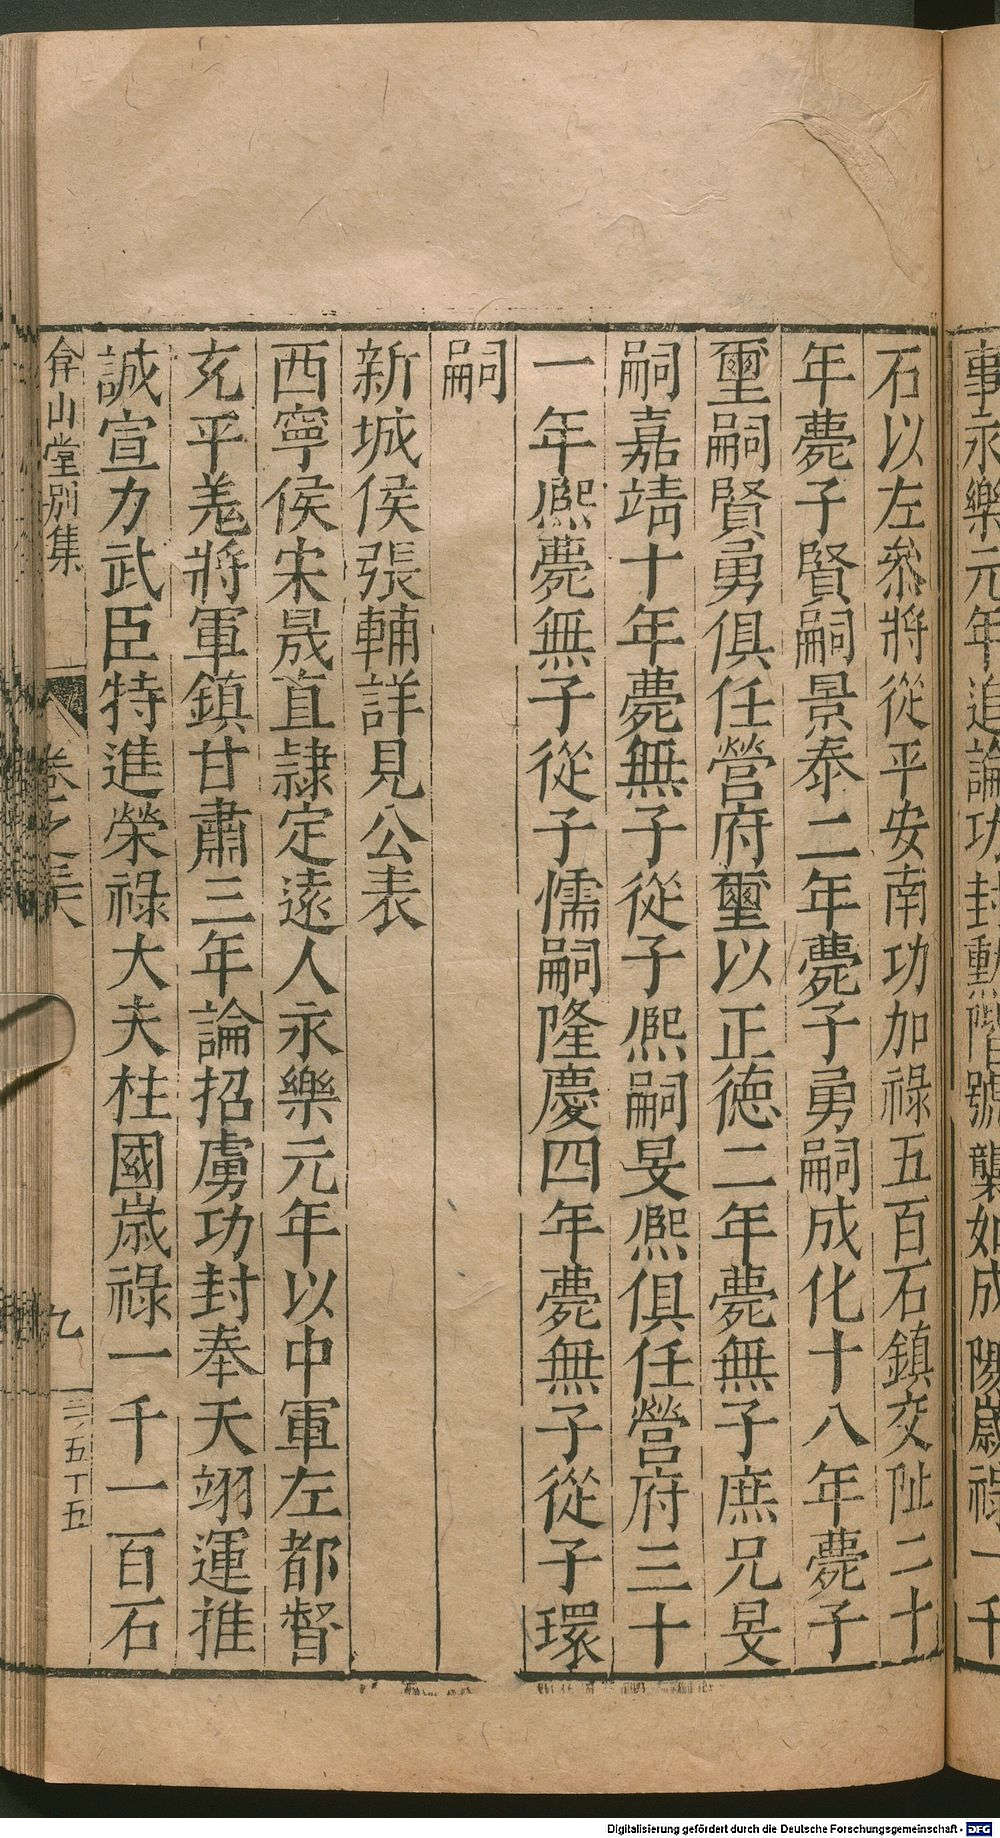 事永樂元年追論功封勳階號襲如成陽歲祿一千
石以左叅將從平安南功加祿五百石鎮交阯二十
年薨子賢嗣景泰二年薨子勇嗣成化十八年薨子
璽嗣賢勇俱任營府璽以正德二年薨無子庶兄旻
嗣嘉靖十年薨無子從子熈嗣旻熈俱任營府三十
一年熈薨無子從子懦嗣隆慶四年薨無子從子環
嗣
新城侯張輔詳見公表
西寧侯宋晟直隷定遠人永樂元年以中軍左都督
充平羗將軍鎮甘肅三年論招虜功封奉天翊運推
誠宣力武臣特進榮祿大夫柱國歲祿一千一百石
弇山堂別集
卷之
九
五丁五
Digitalisierung gefördert durch die Deutsche Forschungsgemeinschaft - DFG